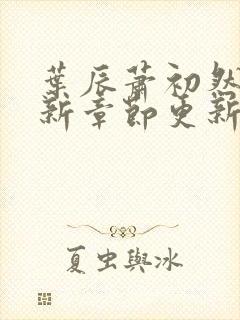 葉辰蕭初然
新章節更新
夏虫與冰